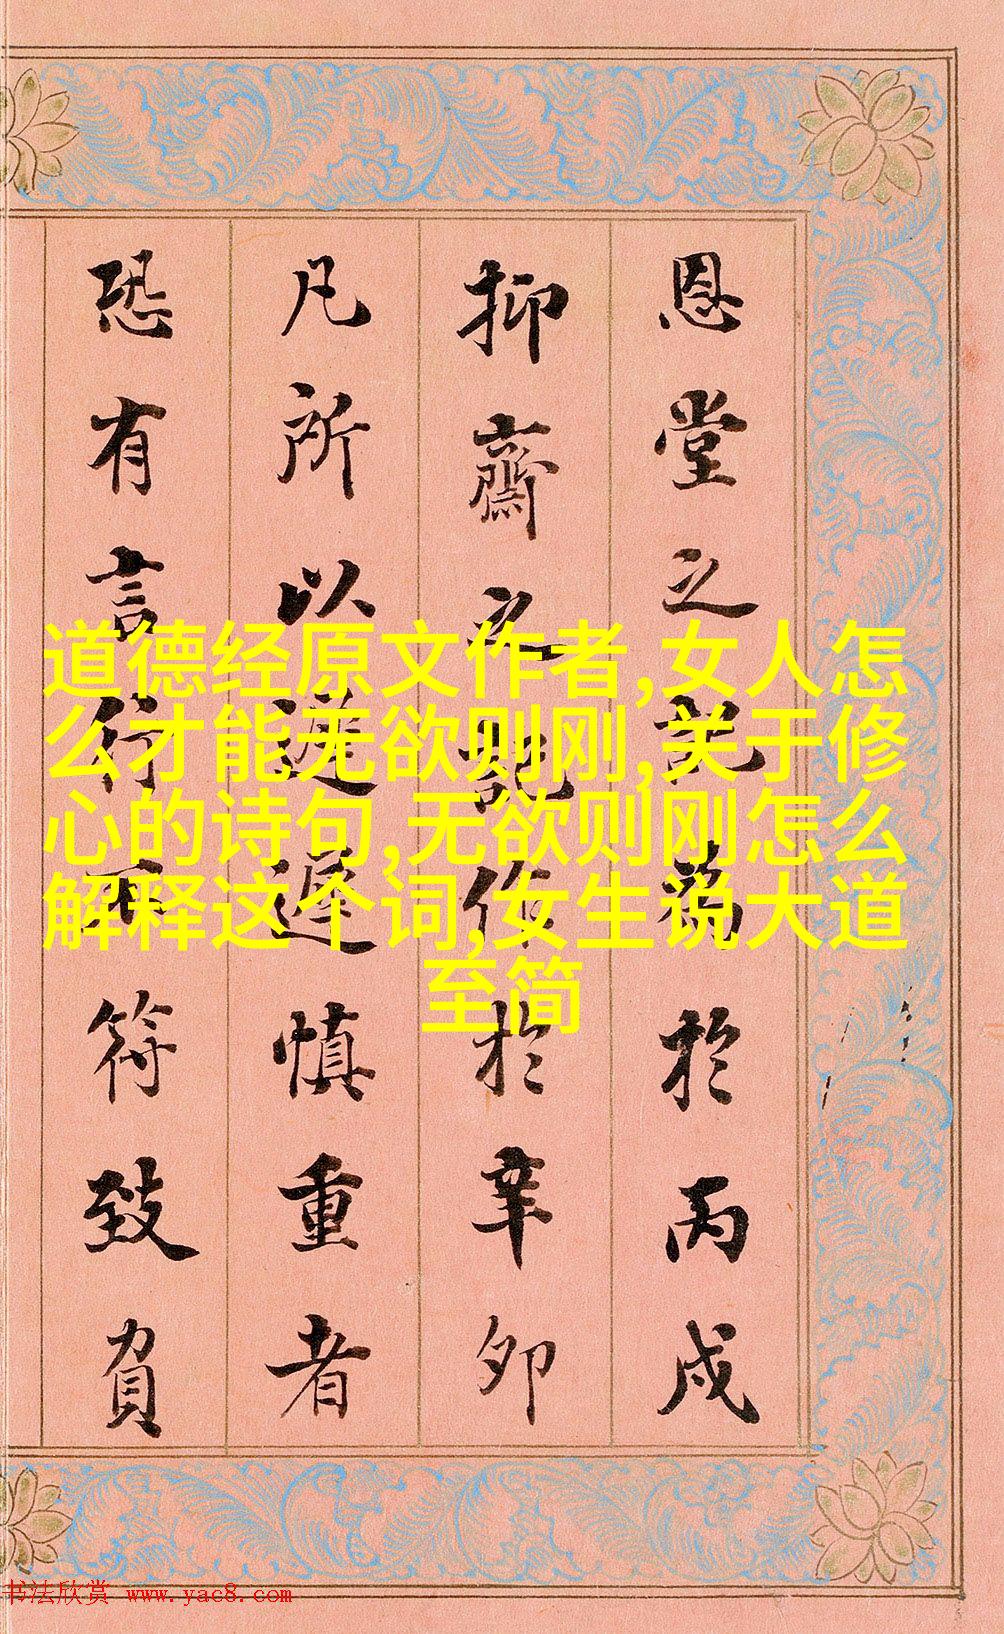 恩堂之記為於丙戌
抑齋之記作於辛卯
凡所以遲遲慎重者
恐有言行不符致負
道德经原文作者,女人怎
么才能无欲则刚,关于修
心的诗句,无欲则刚怎么
解释这个词,女生说大道
至简
书法欣赏 www.yac8.com